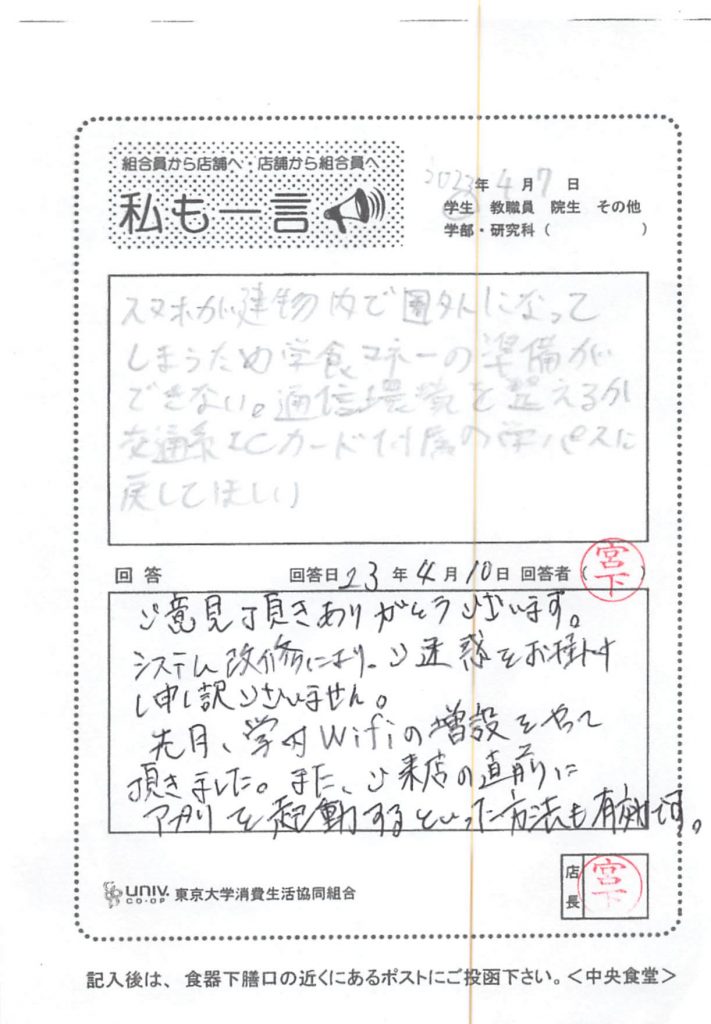 組合員から店舗へ 店舗から組合員へ
私も一言
2023年4月7日
学生 教職員 院生 その他
学部・研究科( )
スマホが建物内で圏外になって
しまうため学食マネーの準備が
できない。通信環境を整えるか
交通系ICカード付属の学パスに
戻してほしい
回答 回答日23年4月10日 回答者(宮下)
ご意見頂きありがとうございます。
システム改修により、ご迷惑をお掛け
し申し訳ございません。
先月、学内Wifiの増設をやって
頂きました。また、ご来店の直前に
アプリを起動するといった方法も有効です。
UNIV. CO-OP 東京大学消費生活協同組合
店長 宮下
記入後は、食器下膳口の近くにあるポストにご投函下さい。<中央食堂>